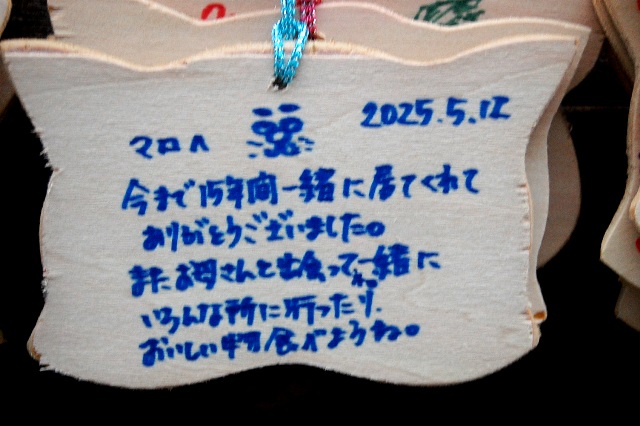 マロへ
2025.5.12
今まで15年間一緒に居てくれて
ありがとうございました。
またお母さんと出会って一緒に
いろんな所に行ったり、
おいしい物食べようね。